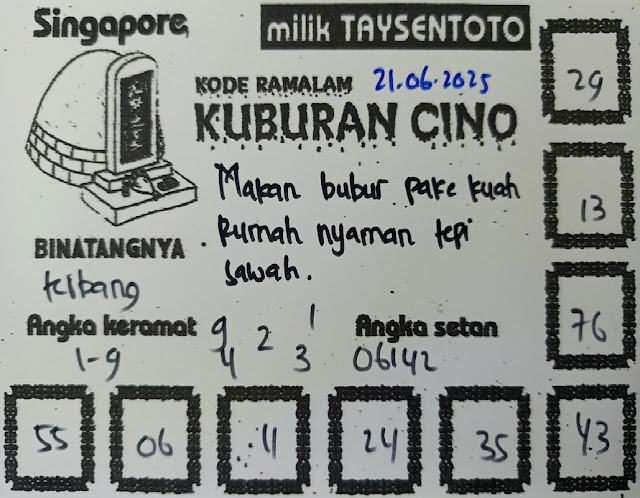 Singapore
milik TAYSENTOTO
KODE RAMALAM 21.06.2025
KUBURAN CINO
Makan bubur pake kuah
Rumah nyaman tepi
sawah.
BINATANGNYA
terbang
Angka keramat
1-9
9 2 1
4 3
Angka setan
06142
29
13
76
55 06 11 24 35 43